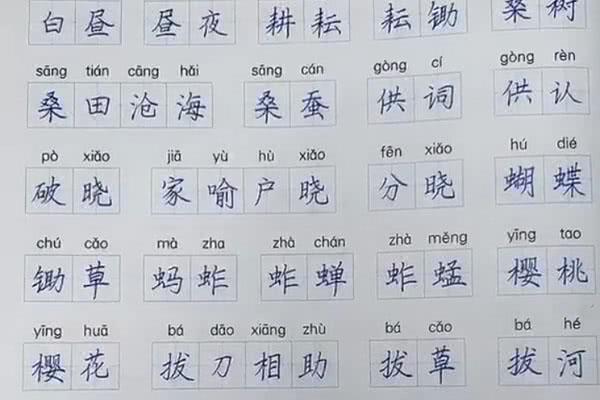 白昼 昼夜 耕耘 耘锄 桑树
sāng tián cāng hǎi sāng cán gòng cí gòng rèn
桑田沧海 桑蚕 供词 供认
pò xiǎo jiā yù hù xiǎo fēn xiǎo hú dié
破晓 家喻户晓 分晓 蝴蝶
chú cǎo mà zha zhà chán zhà měng yīng tao
锄草 蚂蚱 蚱蝉 蚱蜢 樱桃
yīng huā bá dāo xiāng zhù bá cǎo bá hé
樱花 拔刀相助 拔草 拔河